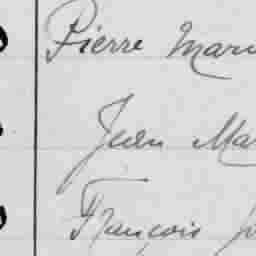 Pierre Mari
Jean Mar
François Jo